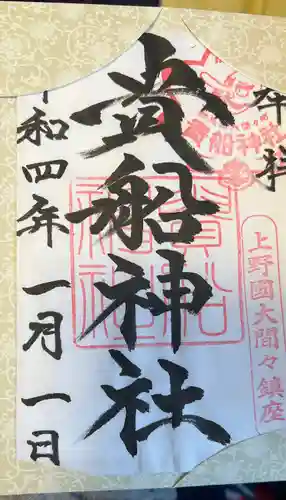 奉拝
上野國大間々鎮座
貴船神社
貴船神社
貴船神社
令和四年一月一日